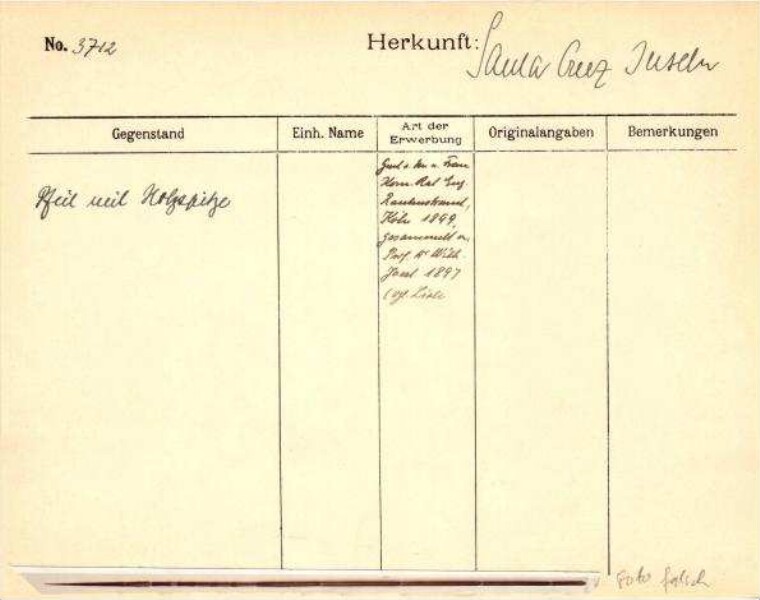 No. 3712
Herkunft: Santa Cruz Inseln
Gegenstand
Einh. Name
Art der Erwerbung
Originalangaben
Bemerkungen
Pfeil mit Holzspitze
Frau
Kom. Rat Eug.
Rautenstrauch,
Köln 1899,
gesammelt v.
Prof. Dr Wilh.
Joest 1897
(vgl. Liste
Foto falsch